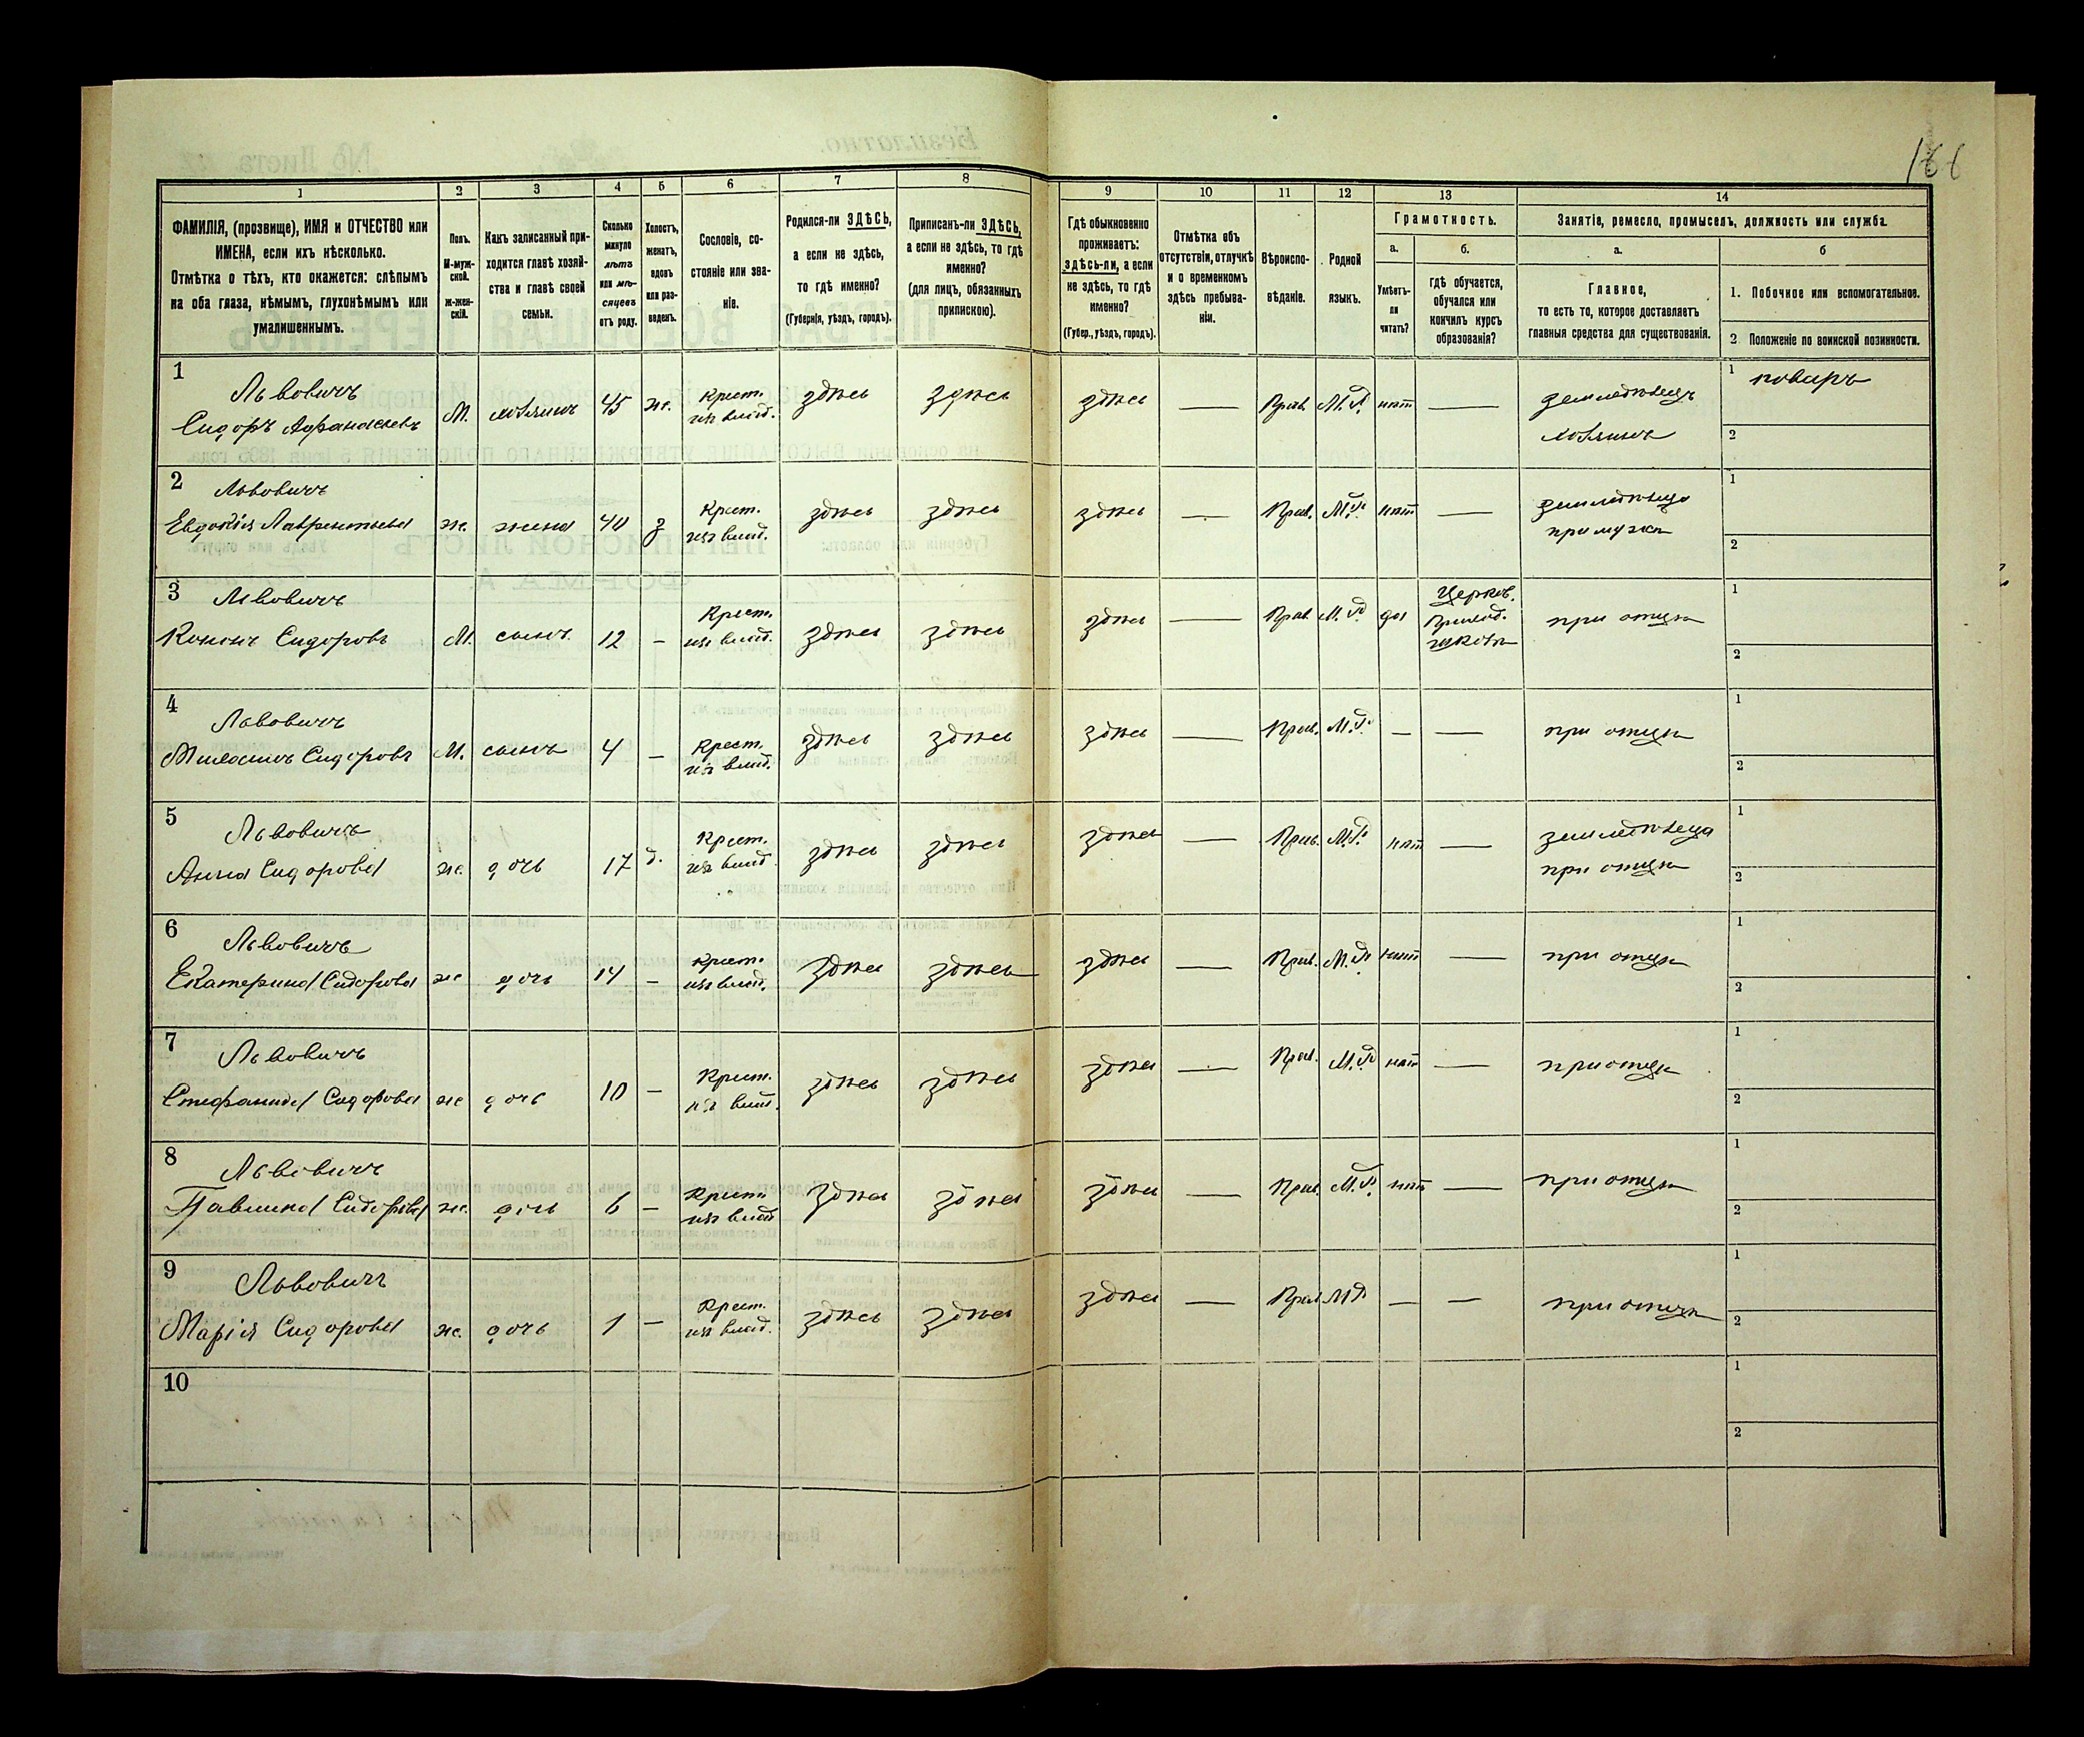 166
1 2 3 4 5 6 7 8 9 10 11 12 13 14
ФАМИЛІЯ, (прозвище), ИМЯ и ОТЧЕСТВО или
ИМЕНА, если ихъ нѣсколько.
Отмѣтка о тѣхъ, кто окажется: слѣпымъ
на оба глаза, нѣмымъ, глухонѣмымъ или
умалишеннымъ.
Полъ.
М-муж-
ской.
ж-жен-
скій.
Какъ записанный при-
ходится главѣ хозяй-
ства и главѣ своей
семьи.
Сколько
минуло
лѣтъ
или мѣ-
сяцевъ
отъ роду.
Холостъ,
женатъ,
вдовъ
или раз-
веденъ.
Сословіе, со-
стояніе или зва-
ніе.
Родился-ли ЗДѢСЬ,
а если не здѣсь,
то гдѣ именно?
(Губернія, уѣздъ, городъ).
Приписанъ-ли ЗДѢСЬ,
а если не здѣсь, то гдѣ
именно?
(для лицъ, обязанныхъ
припискою).
Гдѣ обыкновенно
проживаетъ:
здѣсь-ли, а если
не здѣсь, то гдѣ
именно?
(Губер., уѣздъ, городъ).
Отмѣтка объ
отсутствіи, отлучкѣ
и о временномъ
здѣсь пребыва-
ніи.
Вѣроиспо-
вѣданіе.
Родной
языкъ.
Грамотность.
а.
Умѣетъ-
ли
читать?
б.
Гдѣ обучается,
обучался или
кончилъ курсъ
образованія?
Занятіе, ремесло, промыселъ, должность или служба.
а.
Главное,
то есть то, которое доставляетъ
главныя средства для существованія.
б
1. Побочное или вспомогательное.
2 Положеніе по воинской повинности.
1
Львовичъ
Сидоръ Афанасьевъ М. хозяинъ 45 ж. Крест. изъ влад. здѣсь здѣсь здѣсь — Прав. М. Р. нѣт — земледѣлецъ
хозяинъ
1 поваръ
2
2
Львовичъ
Евдокія Лаврентьева ж. жена 40 з Крест. изъ влад. здѣсь здѣсь здѣсь — Прав. М. Р. нѣт — земледѣлица
при мужѣ
1
2
3
Львовичъ
Кононъ Сидоровъ М. сынъ 12 — Крест. изъ влад. здѣсь здѣсь здѣсь — Прав. М. Р. да Церков.
Приход.
школѣ
при отцѣ
1
2
4
Львовичъ
Сидоровъ М. сынъ 4 — Крест. изъ влад. здѣсь здѣсь здѣсь — Прав. М. Р. — — при отцѣ
1
2
5
Львовичъ
Анна Сидорова ж. дочь 17 д. Крест. изъ влад. здѣсь здѣсь здѣсь — Прав. М. Р. нѣт — земледѣлица
при отцѣ
1
2
6
Львовичъ
Екатерина Сидорова ж дочь 14 — Крест. изъ влад. здѣсь здѣсь здѣсь — Прав. М. Р. нѣт — при отцѣ
1
2
7
Львовичъ
Стефанида Сидорова ж дочь 10 — Крест. изъ влад. здѣсь здѣсь здѣсь — Прав. М. Р. нѣт — при отцѣ
1
2
8
Львовичъ
Павлина Сидорова ж. дочь 6 — Крест. изъ влад здѣсь здѣсь здѣсь — Прав. М. Р. нѣт — при отцѣ
1
2
9
Львовичъ
Марія Сидорова ж. дочь 1 — Крест. изъ влад. здѣсь здѣсь здѣсь — Прав М Р — — при отцѣ
1
2
10
1
2